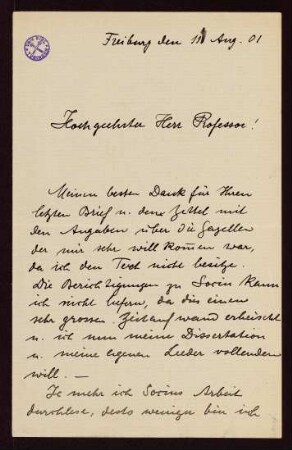 Freiburg den 11 Aug. 01
Hochgeehrter Herr Professor!
Meinen besten Dank für Ihren
letzten Brief u. den Zettel mit
den Angaben über die Gazellen
der mir sehr willkom̄en war,
da ich den Text nicht besitze.
Die Berichtigungen zu Socin kann
ich nicht liefern, da dies einen
sehr grossen Zeitaufwand erheischt
u. ich nun meine Dissertation
u. meine eigenen Lieder vollenden
will. —
Je mehr ich Socins Arbeit
durchlese, desto weniger bin ich